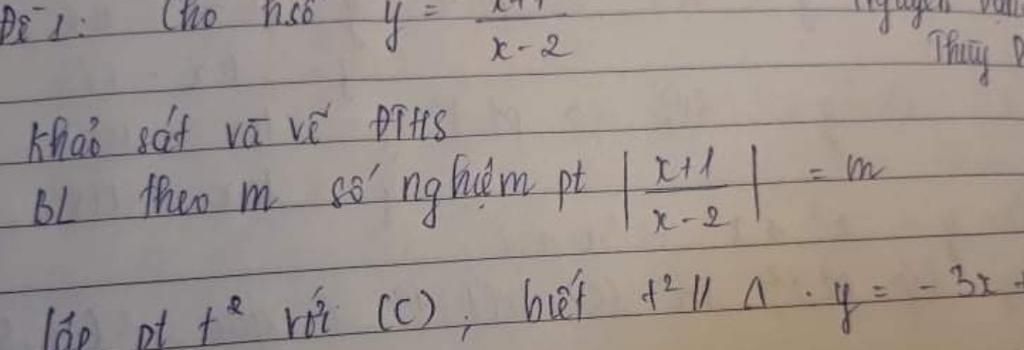 Đề 1: Cho hsố y = x+1 / x-2
Thủy
Khảo sát và vẽ ĐTHS
BL theo m số nghiệm pt | x+1 / x-2 | = m
lập pt t² với (C), biết t² // Δ. y = -3x +